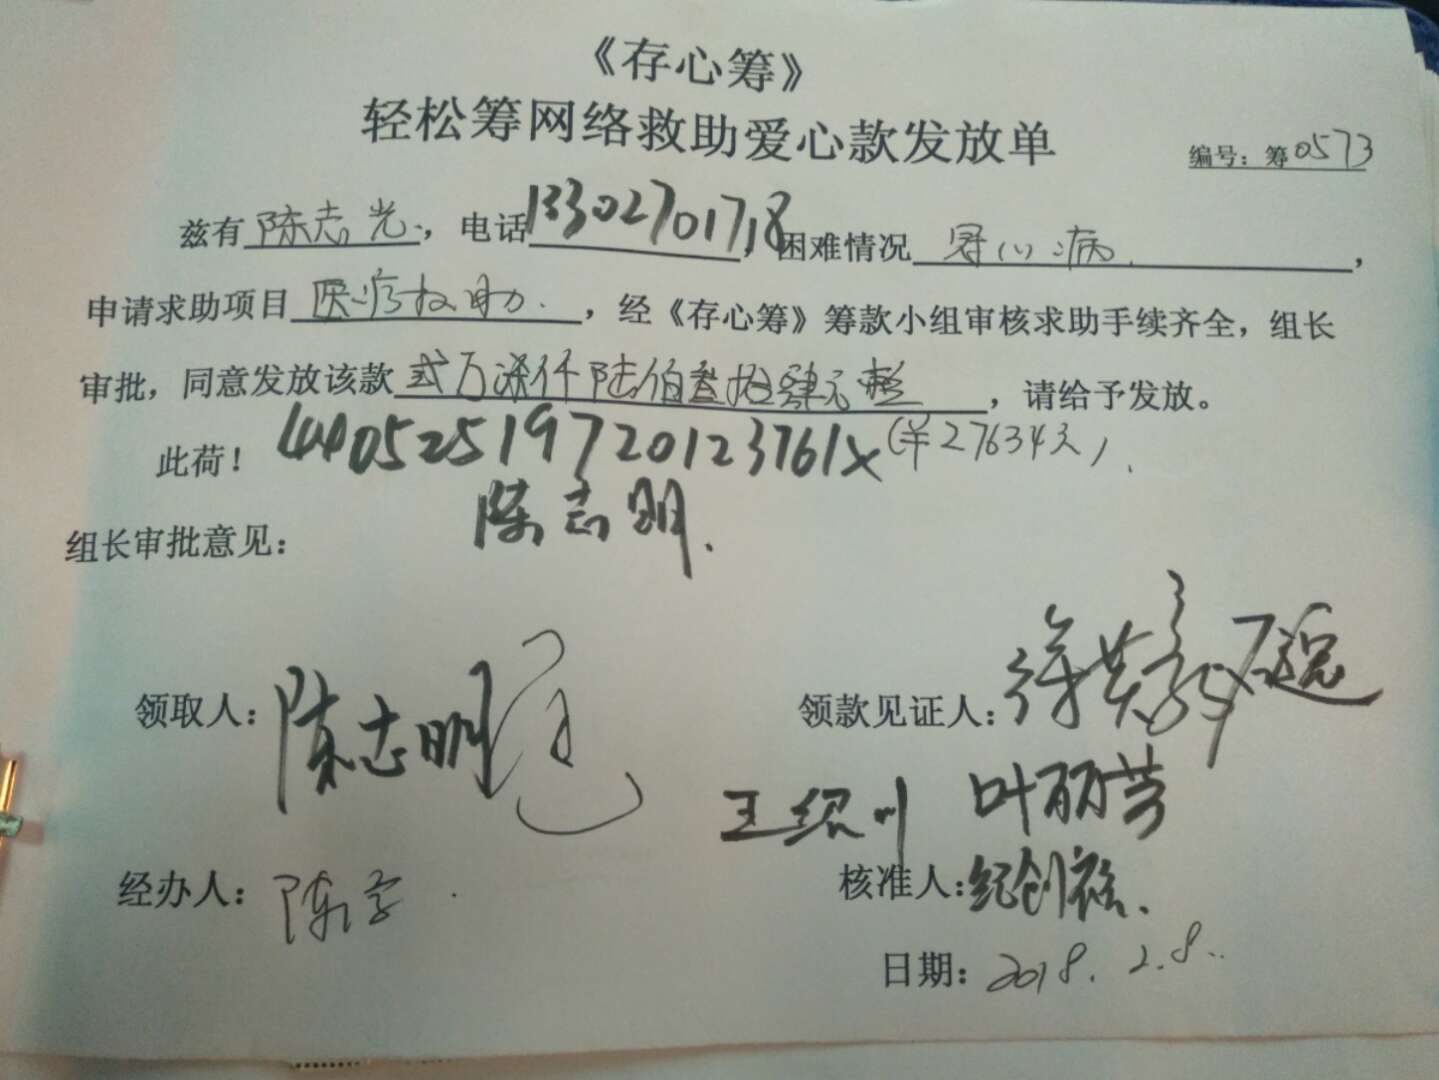 《存心筹》
轻松筹网络救助爱心款发放单
编号：筹0573
兹有陈志光，电话13302701718，困难情况冠心病，
申请求助项目医疗救助，经《存心筹》筹款小组审核求助手续齐全，组长
审批，同意发放该款贰万柒仟陆佰叁拾肆元整，请给予发放。
此荷！44052519720123761x（￥27634元）.
陈志明.
组长审批意见：
领取人：陈志明
领款见证人：
王绍川 叶丽芳
经办人：陈
核准人：纪创
日期：2018.2.8.